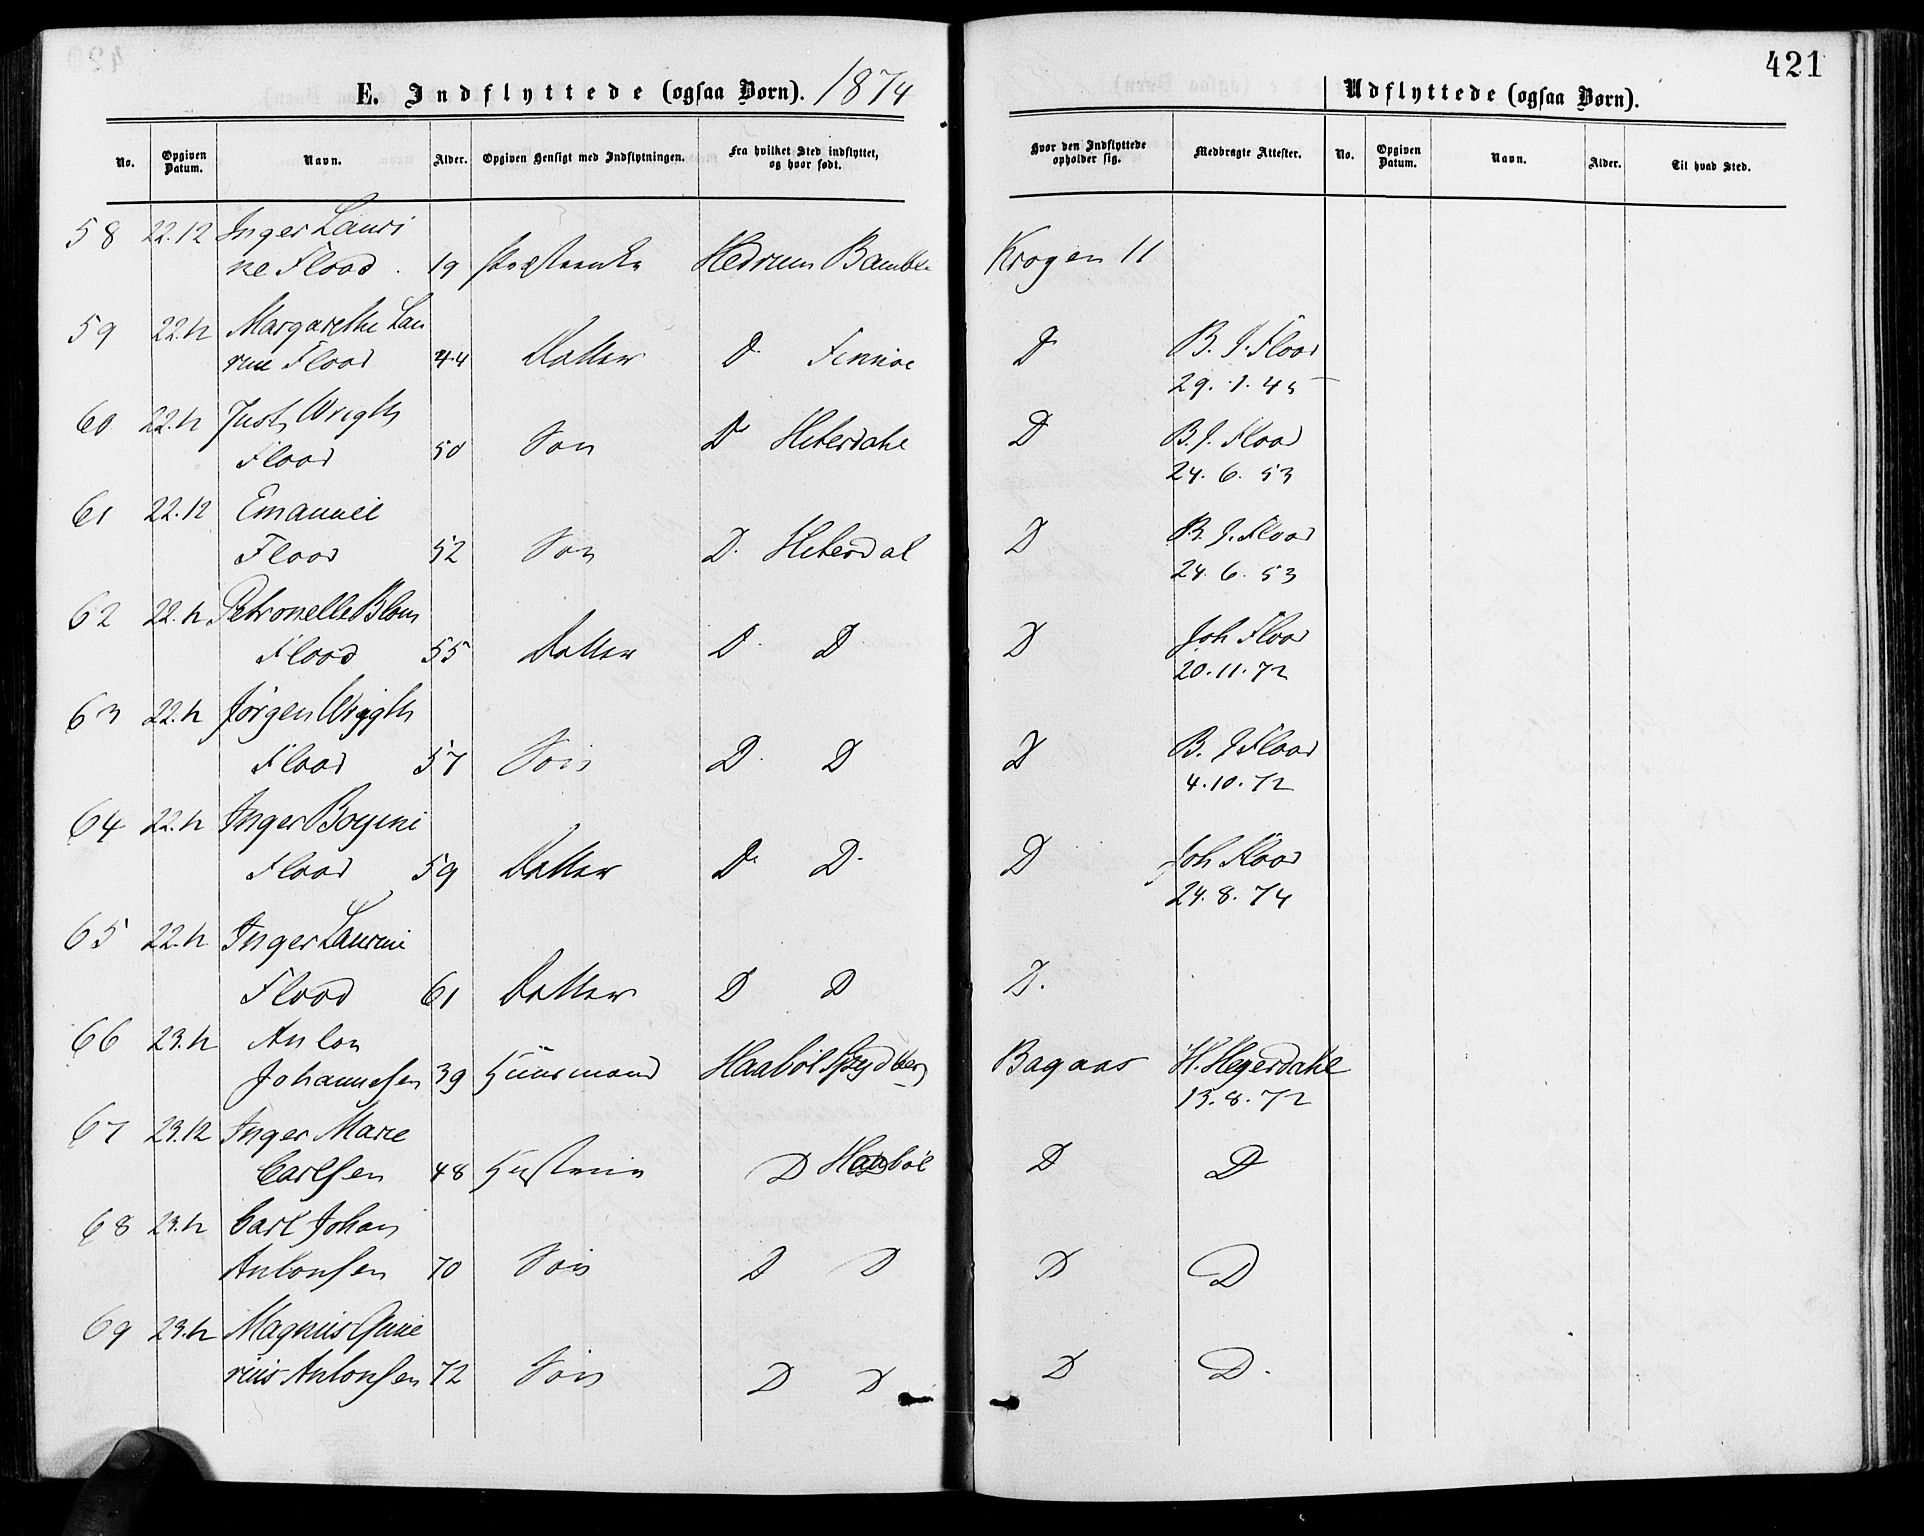 421
E. Indflyttede (ogsaa Børn). 1874
Udflyttede (ogsaa Børn).
No. Opgiven Datum. Navn. Alder. Opgiven Hensigt med Indflytningen. Fra hvilket Sted indflyttet, og hvor født. Hvor den Indflyttede opholder sig. Medbragte Attester. No. Opgiven Datum. Navn. Alder. Til hvad Sted.
58 22.12 Inger Lauri
ne Flood. 19 Præsteenke Hedrum Bamble Krogen 11
59 22.12 Margarethe Lau
rine Flood 44 Datter D. Finnøe D B. J. Flood
29. 1. 45
60 22.12 Just Wrigth
Flood 50 Søn D Hiterdahl D B. J. Flood
24. 6. 53
61 22.12 Emanuel
Flood 52 Søn D. Hiterdal D B. J. Flood
24. 6. 53
62 22.12 Petronelle Blom
Flood 55 Datter D. D D Joh Flood
20. 11. 72
63 22.12 Jørgen Wrigth
Flood 57 Søn D. D D B. J Flood
4. 10. 72
64 22.12 Inger
Flood 59 Datter D. D. D Joh Flood
24. 8. 74
65 22.12 Inger Laurine
Flood 61 Datter D D D.
66 23.12 Anton
Johannesen 39 Huusmand Haabøl Spydberg Bagaas H. Hegerdahl
13. 8. 72
67 23.12 Inger Marie
Carlsen 48 Hustru D Haabøl D D
68 23.12 Carl Johan
Antonsen 70 Søn D D D D
69 23.12 Magnus
Antonsen 72 Søn D D D D.